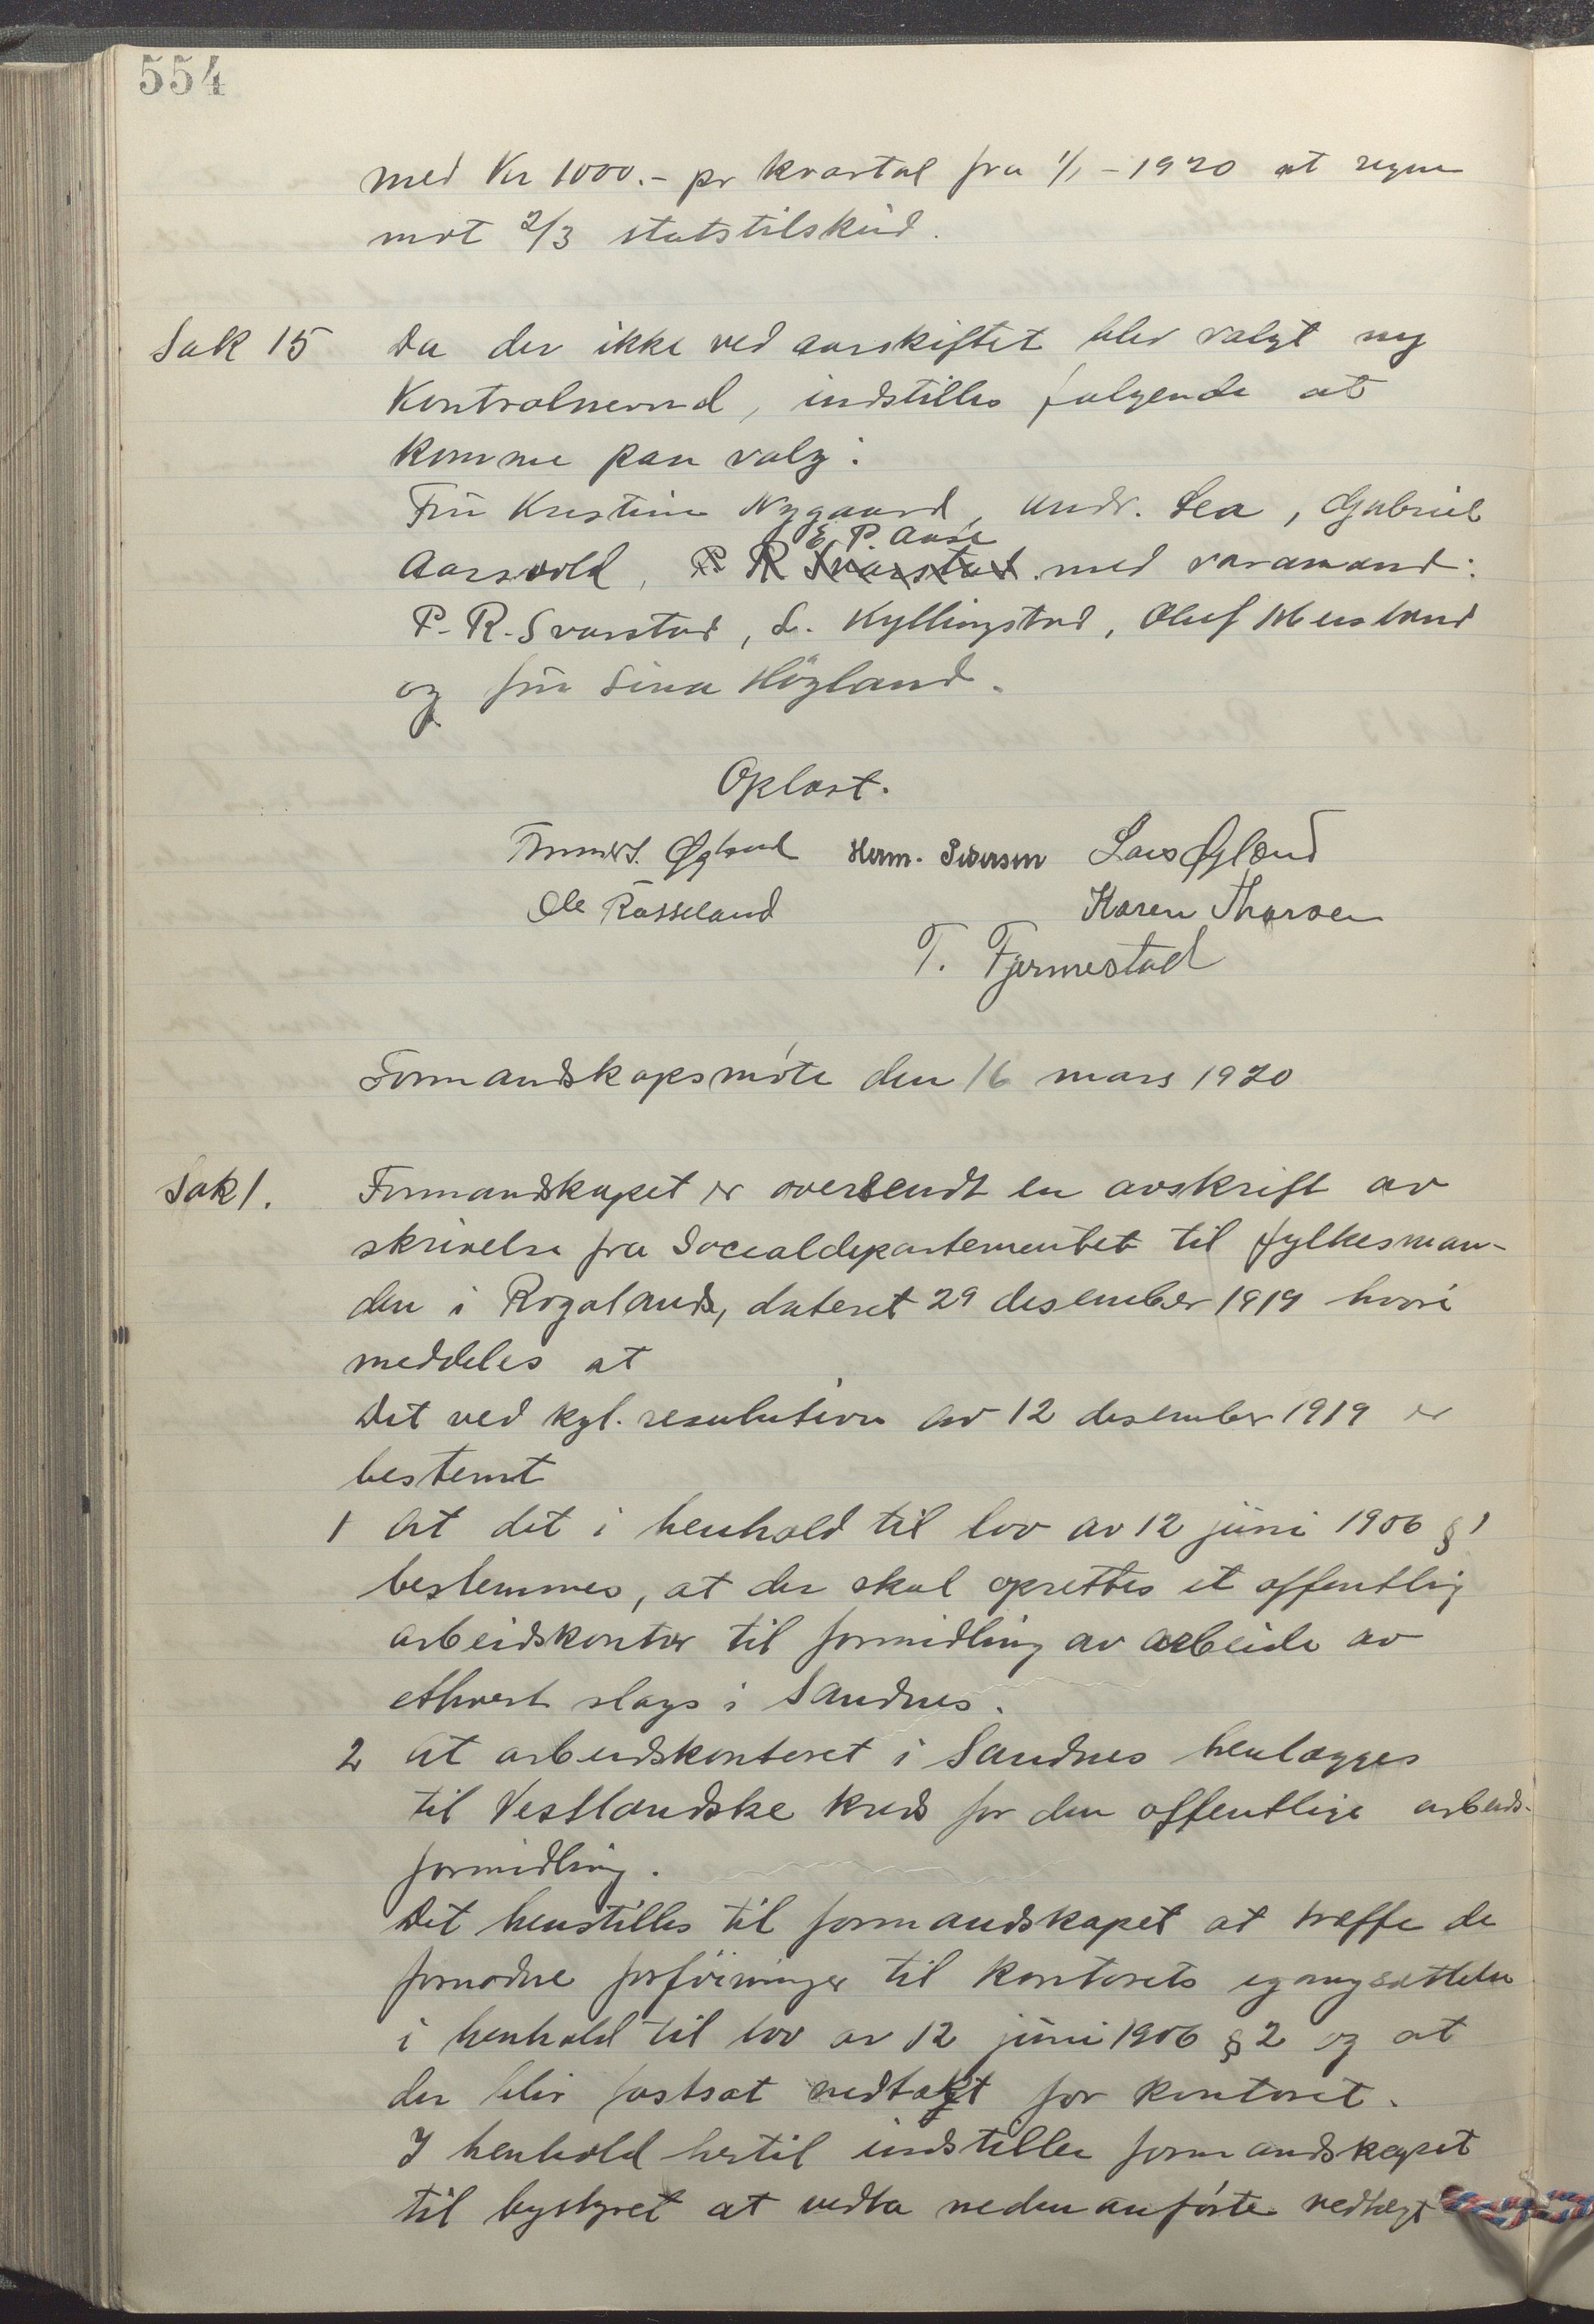 554
med Kr 1000.- pr kvartal fra 1/1 - 1920 at regne
mot 2/3 statstilskud.
Sak 15 Da der ikke ved aarskiftet blev valgt ny
Kontrolnevnd, indstilles følgende at
komme paa valg:
Fru Kristine Nygaard, Andr. Lea, Gabriel
E. P. Aase
Aarsvold, P R Svarstad med varamænd:
P. R. Svarstad, L. Kyllingstad, Oluf
og fru Sina Høgland.
Oplæst.
Øgland Herm. Siversen Lars Øgland
Ole Rosseland Karen Thorsen
T. Fjermestad
Formandskapsmøte den 16 mars 1920
Sak 1. Formandskapet er oversendt en avskrift av
skrivelse fra Socialdepartementet til fylkesman-
den i Rogaland, dateret 29 desember 1919 hvori
meddeles at
Det ved kgl. resolution av 12 desember 1919 er
bestemt
1 At det i henhold til lov av 12 juni 1906 § 1
bestemmes, at der skal oprettes et offentlig
arbeidskontor til formidling av arbeide av
ethvert slags i Sandnes.
2 At arbeidskontoret i Sandnes henlægges
til Vestlandske kreds for den offentlige arbeids-
formidling.
Det henstilles til formandskapet at træffe de
fornødne forføininger til kontorets igangsættelse
i henhold til lov av 12 juni 1906 § 2 og at
der blir fastsat vedtækt for kontoret.
I henhold hertil indstiller formandskapet
til bystyret at vedta nedenanførte vedtægt